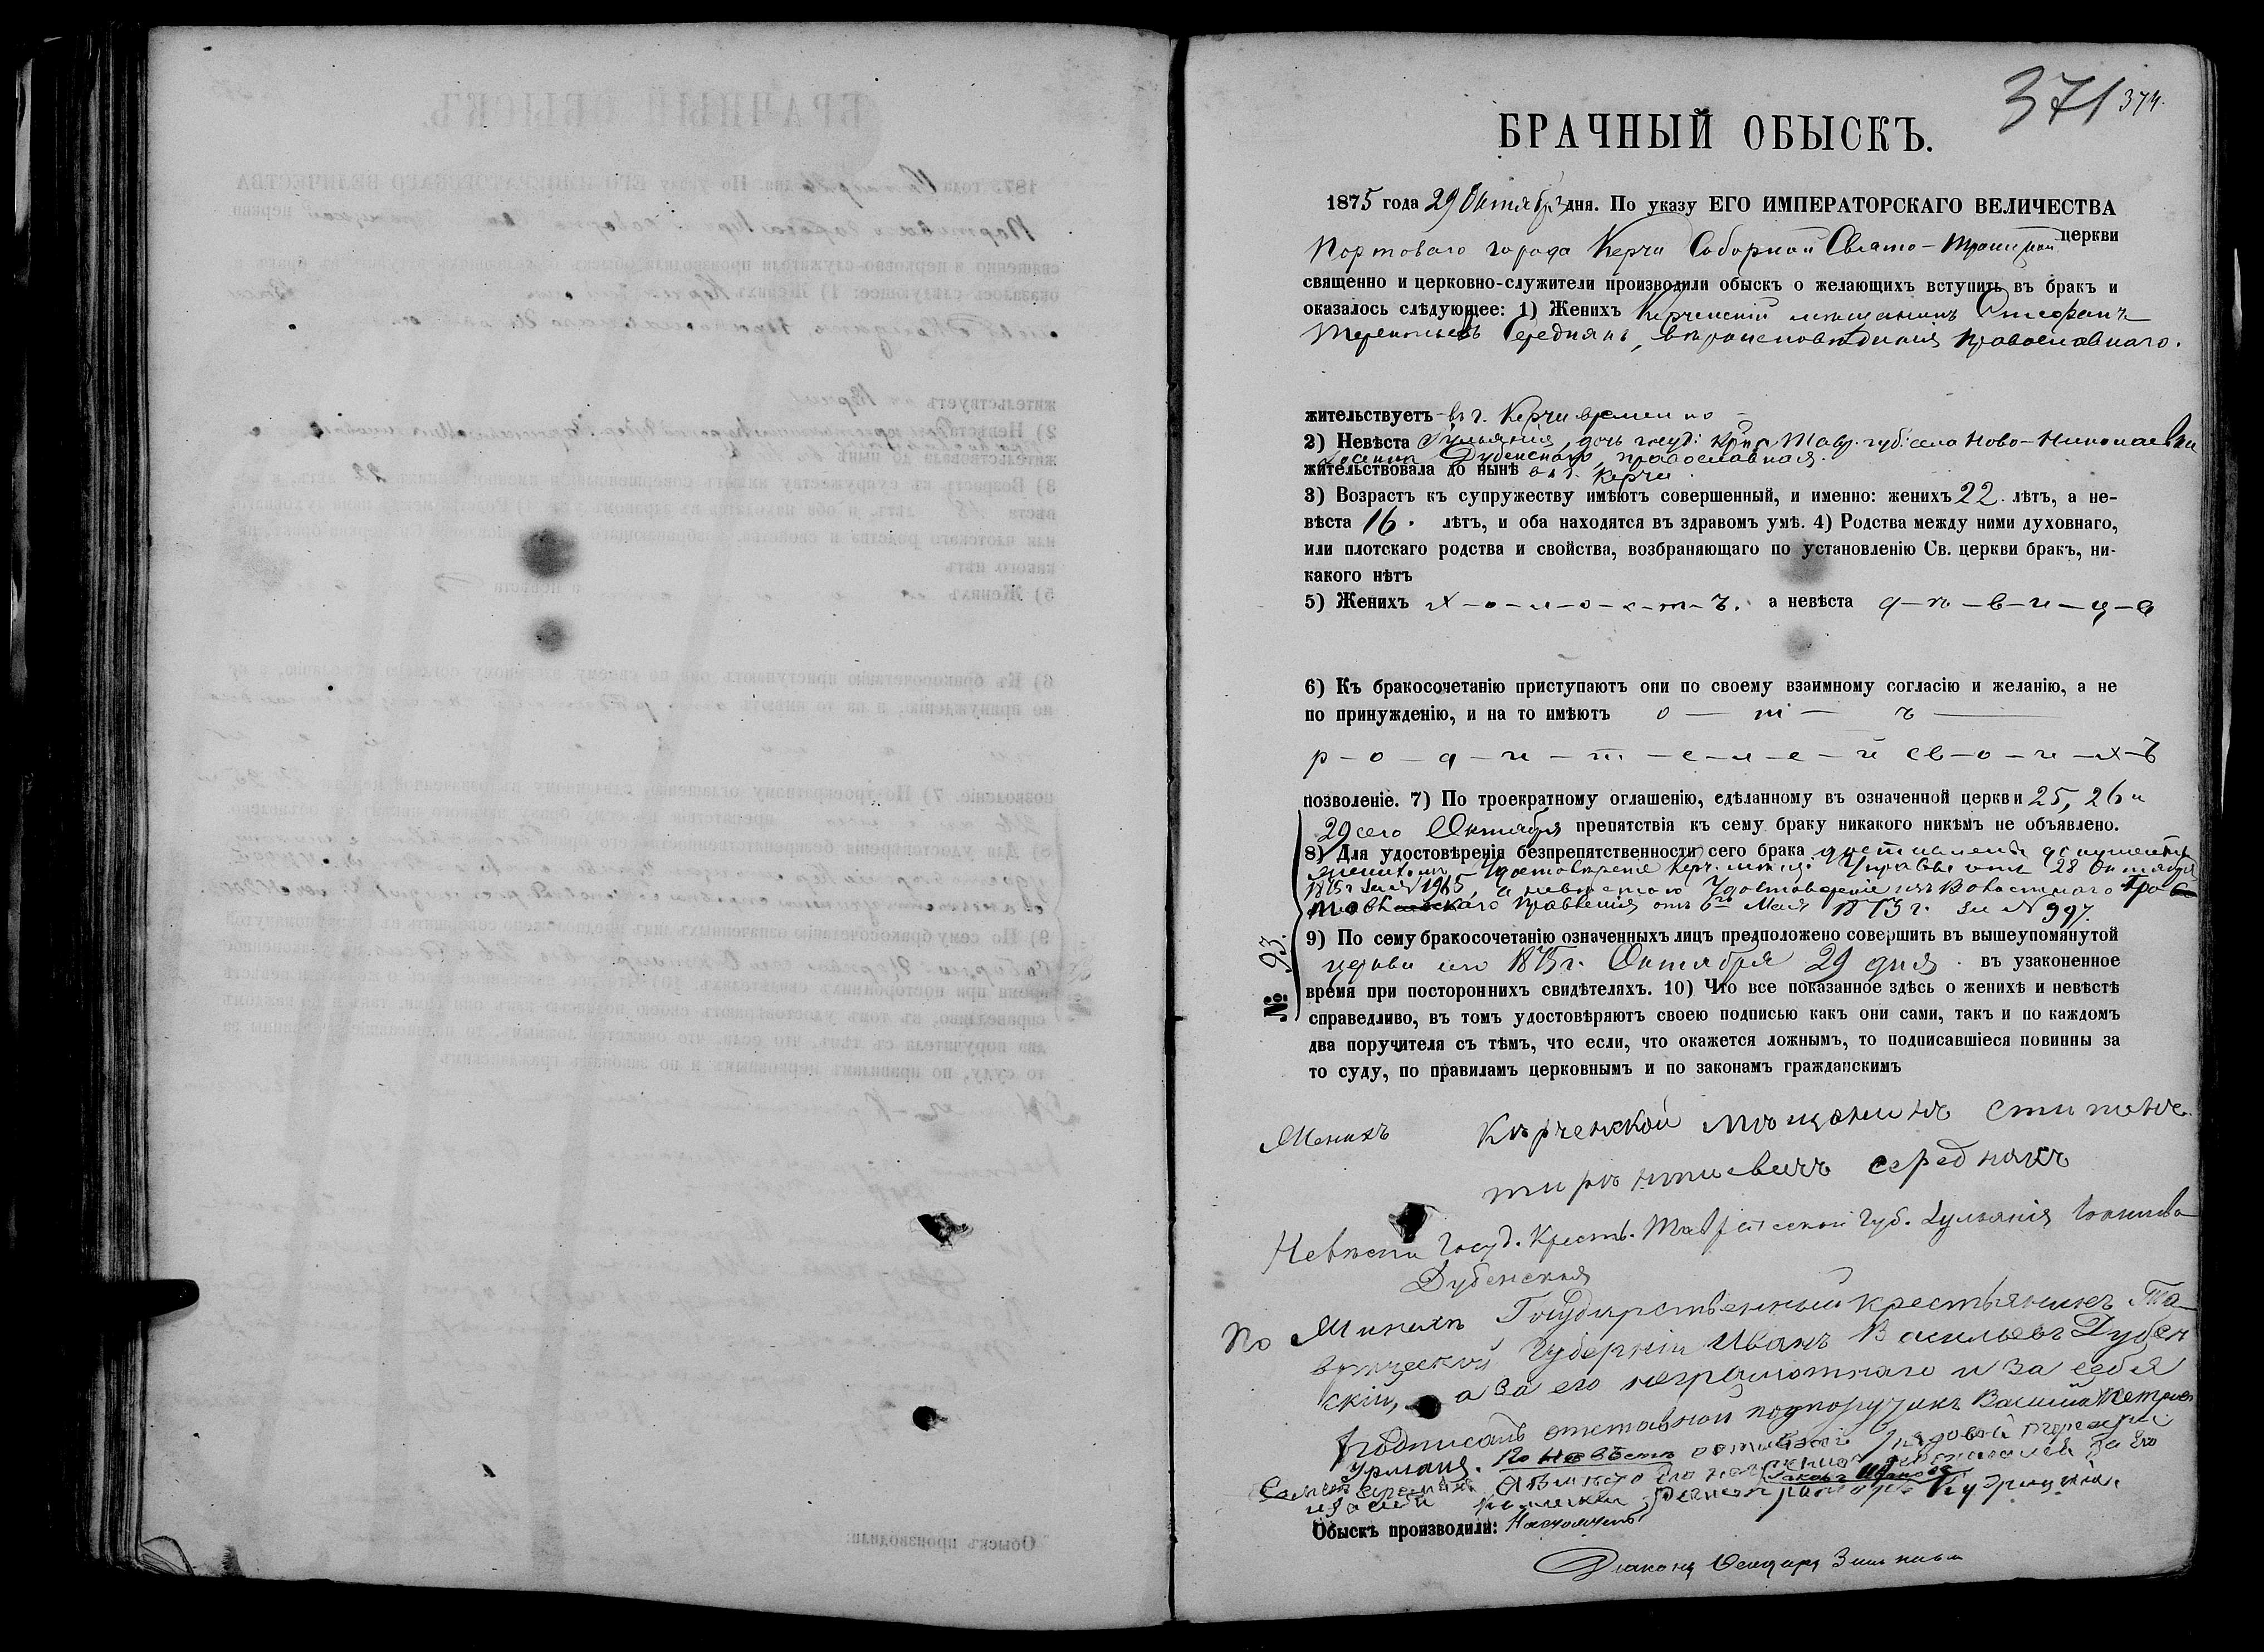 371 374.
БРАЧНЫЙ ОБЫСКЪ.
1875 года 29 Октября дня. По указу ЕГО ИМПЕРАТОРСКАГО ВЕЛИЧЕСТВА
Портоваго города Керчи Соборной Свято-Троицкой церкви
священно и церковно-служители производили обыскъ о желающихъ вступить въ бракъ и
оказалось слѣдующее: 1) Женихъ Керченскій мѣщанинъ Стефанъ
Терентьевъ Середнякъ, вѣроисповѣданія православнаго.
жительствуетъ въ г. Керчи временно
2) Невѣста Іульянія, дочь госуд. Крес. Тавр. губ. села Ново-Николаевки
Дубенскаго, православная.
жительствовала до нынѣ въ г. Керчи
3) Возрастъ къ супружеству имѣютъ совершенный, и именно: женихъ 22. лѣтъ, а не-
вѣста 16. лѣтъ, и оба находятся въ здравомъ умѣ. 4) Родства между ними духовнаго,
или плотскаго родства и свойства, возбраняющаго по установленію Св. церкви бракъ, ни-
какого нѣтъ
5) Женихъ х-о-л-о-с-т-ъ. а невѣста д-ѣ-в-и-ц-а
6) Къ бракосочетанію приступаютъ они по своему взаимному согласію и желанію, а не
по принужденію, и на то имѣютъ о — т — ъ
р-о-д-и-т-е-л-е-й св-о-и-х-ъ
позволеніе. 7) По троекратному оглашенію, сдѣланному въ означенной церкви 25, 26 и
29 сего Октября препятствія къ сему браку никакого никѣмъ не объявлено.
8) Для удостовѣренія безпрепятственности сего брака документы
женихомъ Удостовѣреніе Керч. мѣщ. Управы отъ 28 Октября
1875 г. за № 1965, а невѣстою Удостовѣреніе изъ Волостнаго
Правленія отъ 6го Мая 1875 г. за № 997.
9) По сему бракосочетанію означенныхъ лицъ предположено совершить въ вышеупомянутой
церкви его 1875 г. Октября 29 дня. въ узаконенное
время при постороннихъ свидѣтеляхъ. 10) Что все показанное здѣсь о женихѣ и невѣстѣ
справедливо, въ томъ удостовѣряютъ своею подписью какъ они сами, такъ и по каждомъ
два поручителя съ тѣмъ, что если, что окажется ложнымъ, то подписавшіеся повинны за
то суду, по правиламъ церковнымъ и по законамъ гражданскимъ
№ 93.
Женихъ Кѣрченской мѣщанинъ стипанъ
тирѣнтиевичъ середнякъ
Невѣста Госуд. Крест. Таврической Губ. Іульянія
Дубенская
По Жинихѣ Государственный крестьянинъ Та-
врической Губерніи Иванъ Васильевъ Дубен
скій, а за его неграмотнаго и за себя
подписалъ отставной подпоручикъ Василій Петровъ
Урманъ. По Невѣсте
регистраторъ
Обыскъ производили: Настоятель
Діаконъ